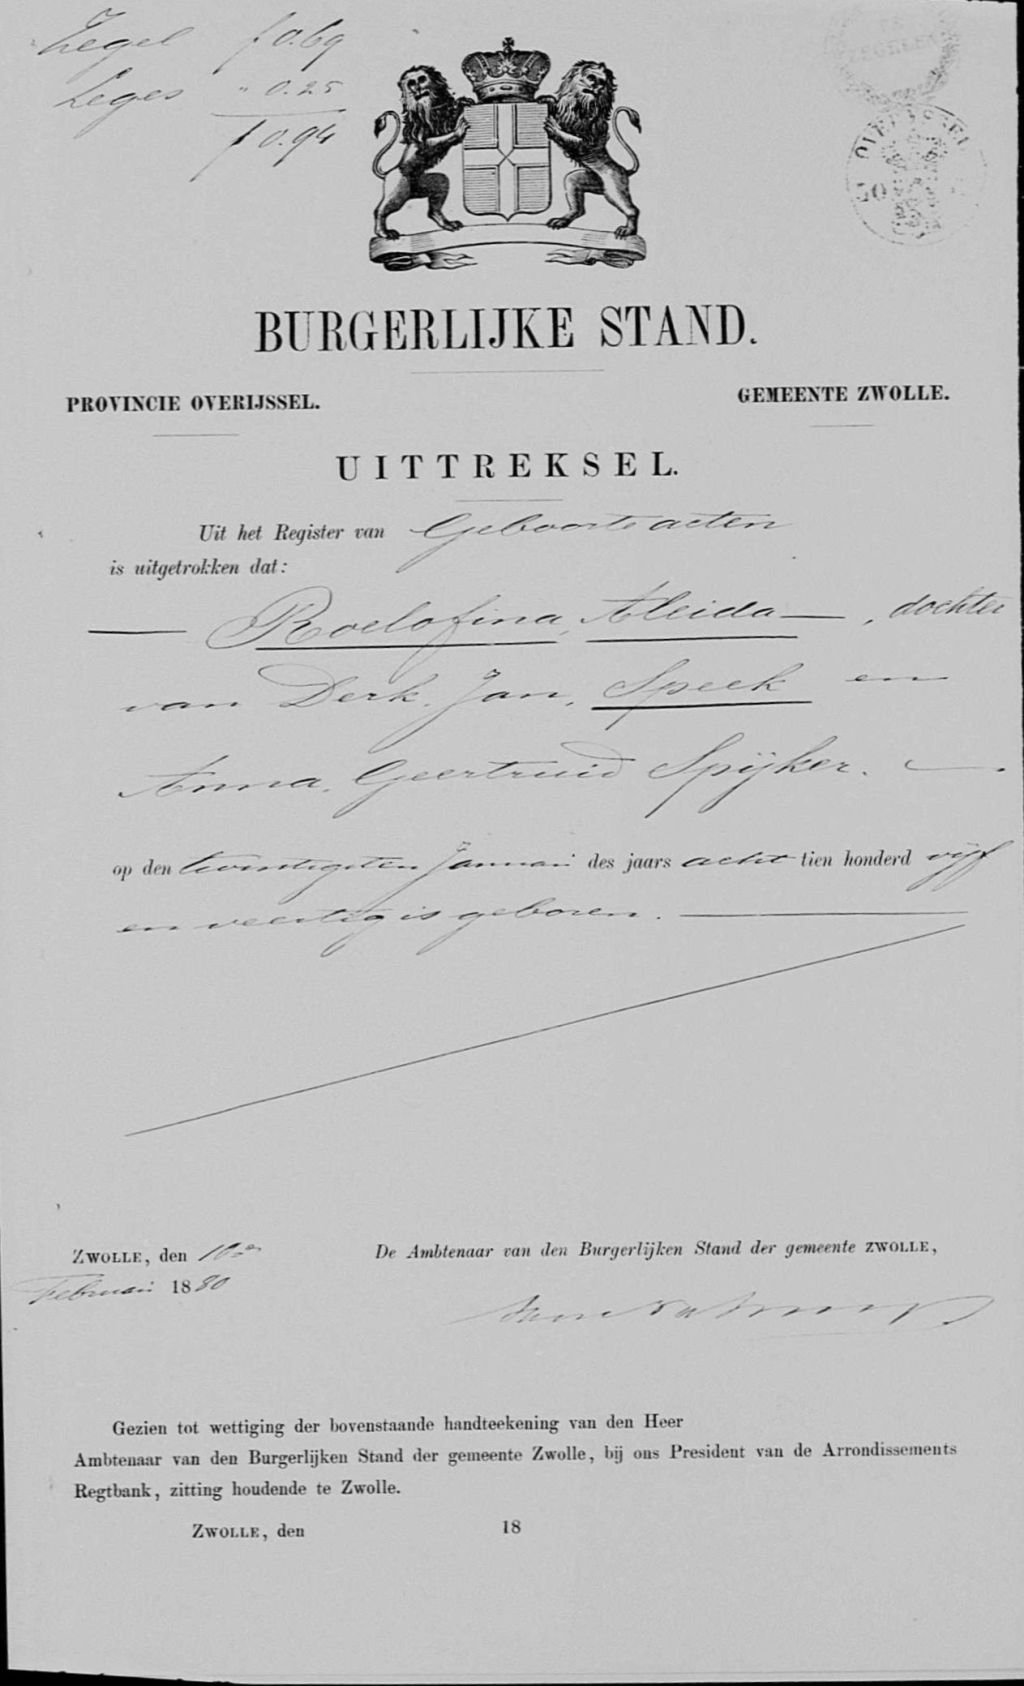 Zegel f 0.69
Leges " 0.25
f 0.94
OVERYSSEL
50
BURGERLIJKE STAND.
PROVINCIE OVERIJSSEL.
GEMEENTE ZWOLLE.
UITTREKSEL.
Uit het Register van Geboorte acten
is uitgetrokken dat:
Roelofina, Aleida, dochter
van Derk, Jan, Speek en
Anna, Geertruid Spijker.
op den twintigsten Januari des jaars acht tien honderd vijf
en veertig is geboren.
ZWOLLE, den 10en
Februari 1880
De Ambtenaar van den Burgerlijken Stand der gemeente ZWOLLE,
Gezien tot wettiging der bovenstaande handteekening van den Heer
Ambtenaar van den Burgerlijken Stand der gemeente Zwolle, bij ons President van de Arrondissements
Regtbank, zitting houdende te Zwolle.
ZWOLLE, den 18